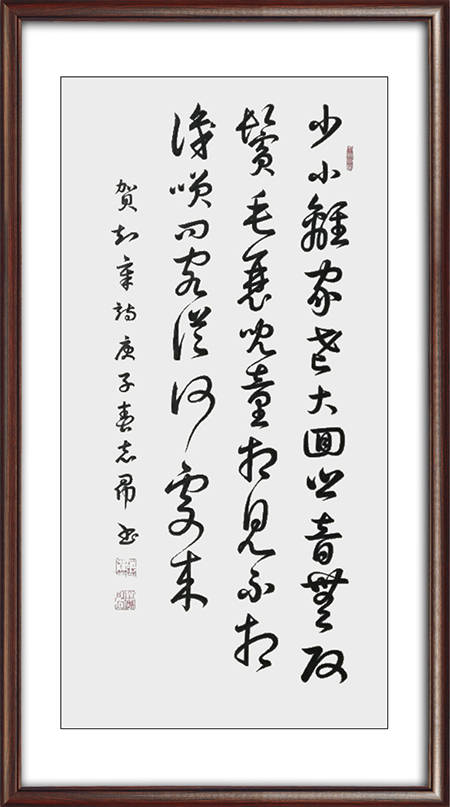 少小離家老大回鄉音無改
鬢毛衰兒童相見不相
識笑問客從何處來
賀知章詩庚子春志書